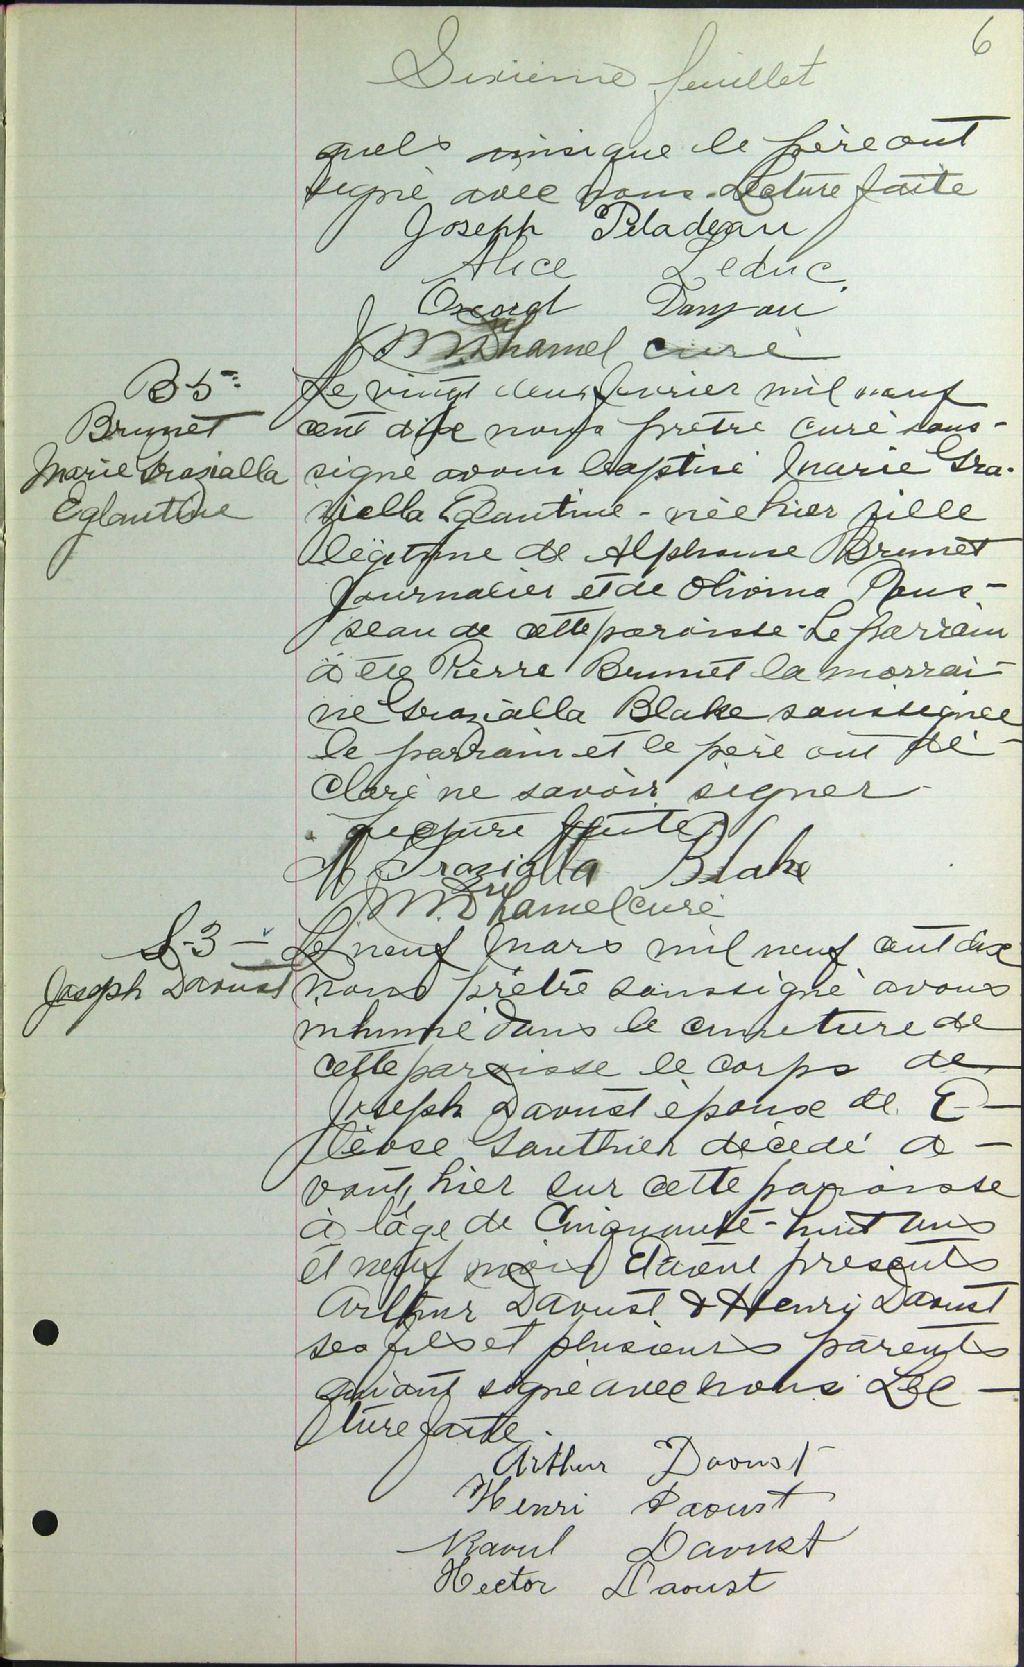 6
Sixième feuillet
quels ainsi que le père ont
signé avec nous. Lecture faite
Joseph Piladeau
Alice Leduc
Oscord
Duhamel curé
B 5
Brunet
Marie Grazialla
Eglantine
Le vingt deux fevrier mil neuf
cent dix nous prêtre curé sous-
signé avons baptisé Marie Gra-
ziella Eglantine - née hier fille
légitime de Alphonse Brunet
Journalier et de Olivina Rous-
seau de cette paroisse - Le parrain
a été Pierre Brunet la marrai-
ne Grazialla Blake soussignée
le parrain et le père ont dé-
claré ne savoir signer
Lecture faite
M Grazialla Blake
Duhamel curé
S-3 -
Joseph Daoust
Le neuf Mars mil neuf cent dix
nous prêtre soussigné avons
inhumé dans le cimetiere de
cette paroisse le corps de
Joseph Daoust époux de E-
léose Gauthier décédé a-
vant hier sur cette paroisse
à l'âge de Cinquante-huit ans
et neuf mois Etaient presents
Arthur Daoust & Henry Daoust
ses fils et plusieurs parents
qui ont signé avec nous Lec-
ture faite.
Arthur Daoust
Henri Daoust
Raoul Daoust
Hector Daoust